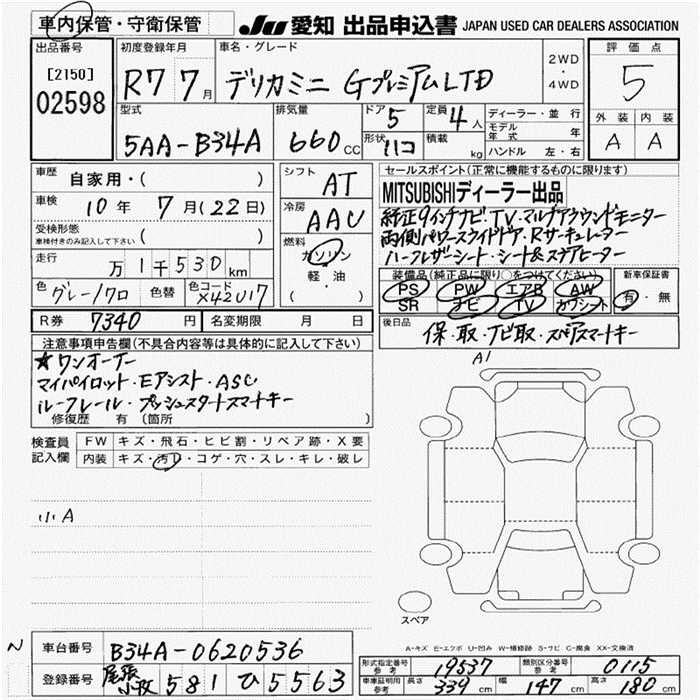 車内保管・守衛保管 JU 愛知 出品申込書 JAPAN USED CAR DEALERS ASSOCIATION
出品番号 初度登録年月 車名・グレード 評価点
[2150] R7 7月 デリカミニ GプレミアムLTD 2WD・4WD 5
02598 型式 排気量 ドア 5 定員 4人 ディーラー・並行 外装 内装
5AA-B34A 660cc 形状 ハコ 積載 kg モデル年式 年 A A
ハンドル 左・右
車歴 自家用・( ) シフト AT セールスポイント(正常に機能するものに限ります)
車検 10年 7月(22日) 冷房 AAC MITSUBISHIディーラー出品
受検形態 純正9インチナビ・TV・マルチアラウンドモニター
車検付きのみ記入して下さい ( ) 燃料 両側パワースライドドア・Rサーキュレーター
走行 万1千530km ガソリン ハーフレザーシート・シート&ステアヒーター
軽・油 装備品(純正品に限り○をつけてください) 新車保証書
色 グレー/クロ 色替 色コード X42U17 ( ) PS PW エアB AW 有・無
SR ナビ TV カワシート
R券 7340円 名変期限 月 日 後日品
保・取・ナビ取・スペアスマートキー
注意事項申告欄(不具合内容等は具体的に記入して下さい) A1
★ワンオーナー
マイパイロット・Eアシスト・ASC
ルーフレール・プッシュスタートスマートキー
修復歴 有(箇所 )
検査員 FW キズ・飛石・ヒビ割・リペア跡・X要
記入欄 内装 キズ・汚レ・コゲ・穴・スレ・キレ・破レ
小A
スペア
A-キズ E-エクボ U-凹み W-補修跡 S-サビ C-腐食 XX-交換済
N 車台番号 B34A-0620536
登録番号 尾張小牧 581 ひ 5563
形式指定番号 参考 19537 類別区分番号 参考 0115
車庫証明用 参考 長さ 339cm 幅 147cm 高さ 180cm